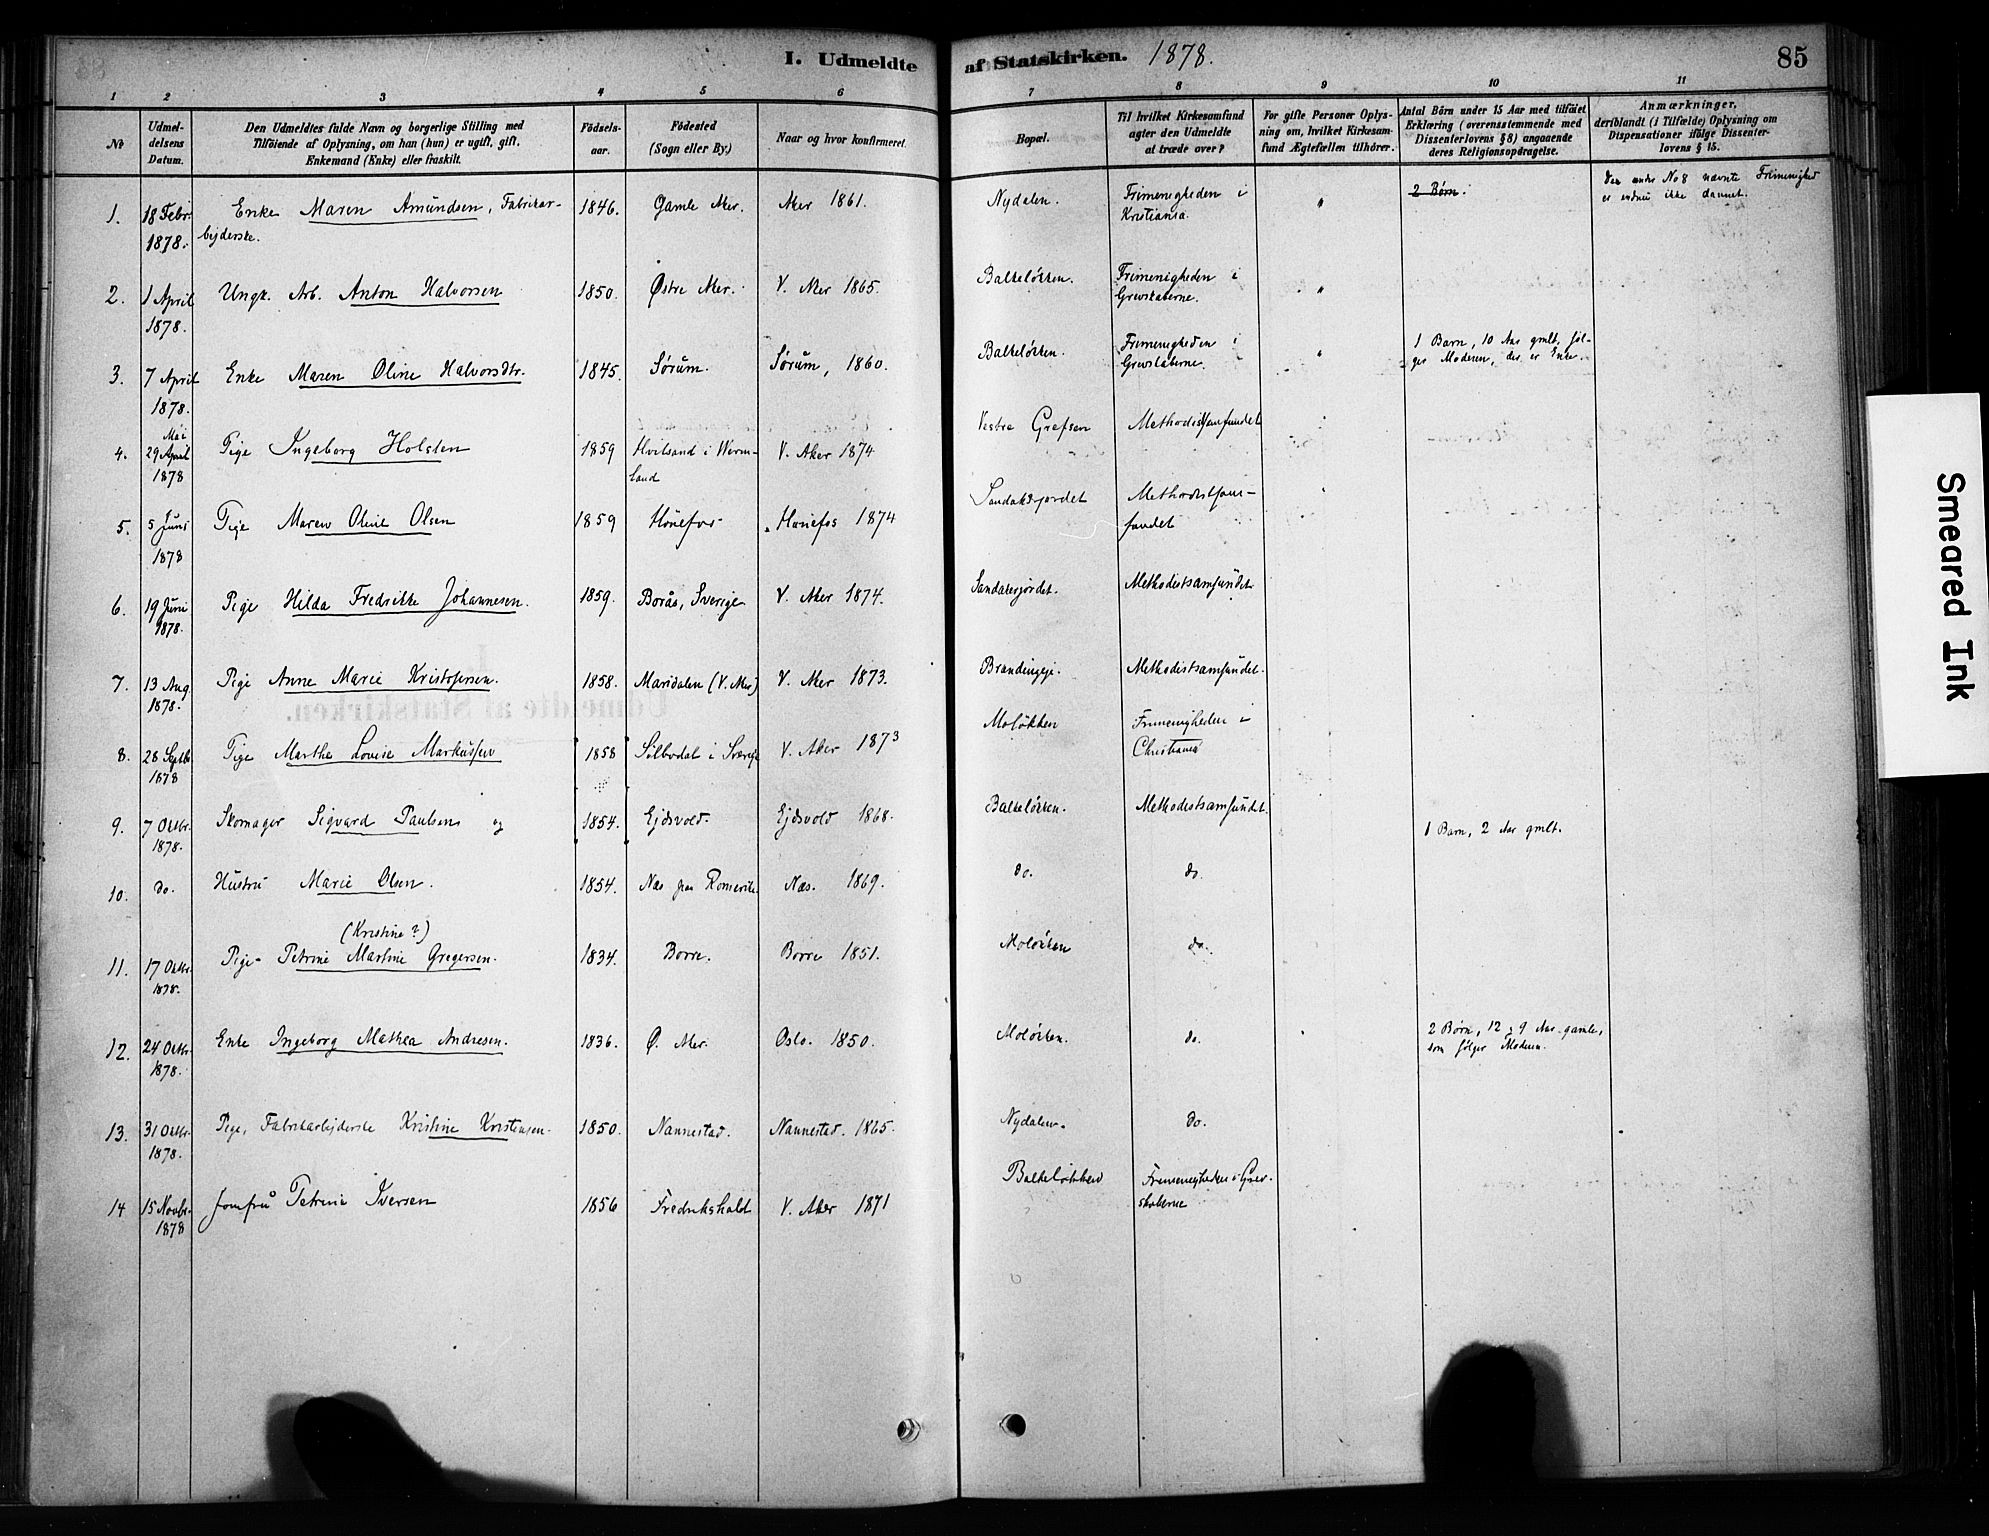 I. Udmeldte af Statskirken. 1878. 85
1 2 3 4 5 6 7 8 9 10 11
No
Udmel-
delsens
Datum.
Den Udmeldtes fulde Navn og borgerlige Stilling med
Tilföiende af Oplysning, om han (hun) er ugift, gift,
Enkemand (Enke) eller fraskilt.
Födsels-
aar.
Födested
(Sogn eller By.)
Naar og hvor konfirmeret.
Bopæl.
Til hvilket Kirkesamfund
agter den Udmeldte
at træde over?
For gifte Personer Oplys-
ning om, hvilket Kirkesam-
fund Ægtefællen tilhörer.
Antal Börn under 15 Aar med tilföiet
Erklæring (overensstemmende med
Dissenterlovens § 8) angaaende
deres Religionsopdragelse.
Anmærkninger,
deriblandt (i Tilfælde) Oplysning om
Dispensationer ifölge Dissenter-
lovens § 15.
1. 18 Febr. 1878. Enke Maren Amundsen, Fabrikar-
bejderske. 1846. Gamle Aker. Aker 1861. Nydalen. Frimenigheden i
Kristiania. " 2 Børn. Den under No 8 nævnte Frimenighed
er endnu ikke dannet.
2. 1 April 1878. Ungk. Arb. Anton Halvorsen 1850. Østre Aker. V. Aker 1865. Balkeløkken. Frimenigheden i
Grevskaberne. "
3. 7 April 1878. Enke Maren Oline Halvorsdtr. 1845. Sørum. Sørum, 1860. Balkeløkken. Frimenigheden i
Grevskaberne. " 1 Barn, 10 Aar gmlt, føl-
ger Moderen, der er Enke.
4. Mai
29 April 1878 Pige Ingeborg Holsten 1859 Hvitsand i Werm-
land V. Aker 1874 Vestre Grefsen Methodistsamfundet
5. 5 Juni 1878 Pige Maren Oline Olsen 1859 Hönefos Hönefos 1874 Sandakerjordet Methodistsam-
fundet
6. 19 Juni 1878. Pige Hilda Fredrikke Johannesen. 1859. Borås, Sverige V. Aker 1874. Sandakerjordet. Methodistsamfundet
7. 13 Aug. 1878. Pige Anne Marie Kristofersen. 1858. Maridalen (V. Aker) V. Aker 1873. Brandengeje. Methodistsamfundet.
8. 28 Septb. 1878 Pige Marthe Lovise Markussen 1858 Silbodal i Sverige V. Aker 1873 Moløkken Frimenigheden i
Christiania
9. 7 Octbr. 1878. Skomager Sigvard Paulsen og 1854. Ejdsvold. Ejdsvold 1868. Balkeløkken. Methodistsamfundet. 1 Barn, 2 Aar gmlt.
10. do. Hustru Marie Olsen. 1854. Næs paa Romerike Næs. 1869. do. do.
(Kristine?)
11. 17 Octbr. 1878. Pige Petrine Martine Gregersen. 1834. Borre. Borre 1851. Moløkken do.
12. 24 Octbr. 1878. Enke Ingeborg Mathea Andresen. 1836. Ø. Aker. Oslo. 1850. Moløkken. do. 2 Børn, 12 & 9 Aar gamle,
som følger Moderen.
13. 31 Octbr. 1878. Pige, Fabrikarbejderske Kristine Kristiansen. 1850. Nannestad. Nannestad. 1865. Nydalen. do.
14 15 Novbr. 1878 Jomfru Petrine Iversen 1856 Fredrikshald V. Aker 1871 Balkeløkken Frimenigheden i Grev-
skaberne
Smeared Ink